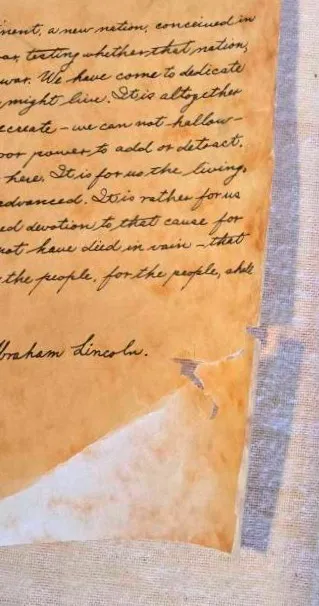 nent, a new nation, conceived in
war, testing whether that nation,
war. We have come to dedicate
might live. It is altogether
ecrate – we can not hallow –
oor power to add or detract.
here. It is for us the living,
advanced. It is rather for us
ed devotion to that cause for
not have died in vain – that
the people, for the people, shall
braham Lincoln.